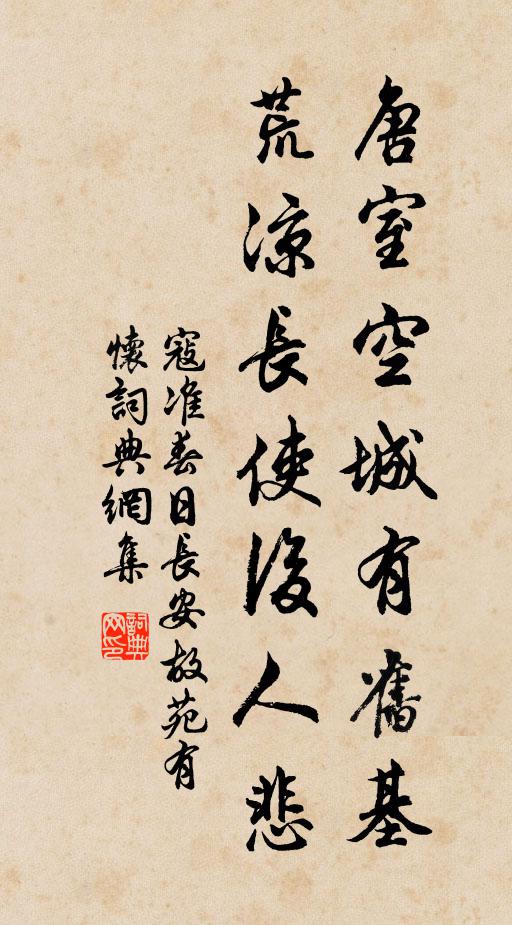 唐室空城有舊基
荒凉長使後人悲
寇准春日長安故苑有
懷詞典網集
詞典网印